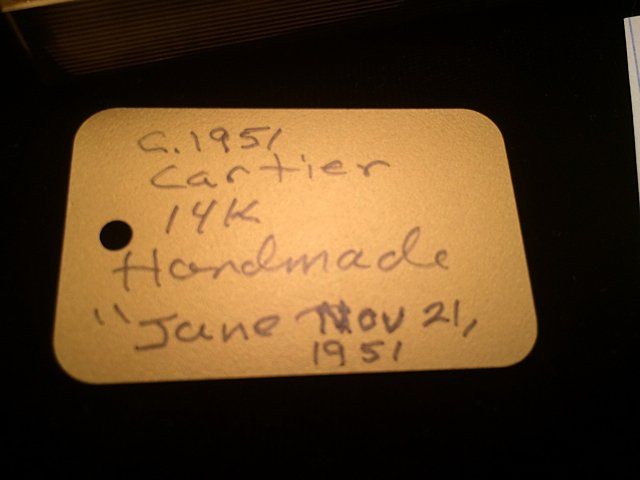 C. 1951
Cartier
14K
Handmade
"Jane Nov 21,
1951